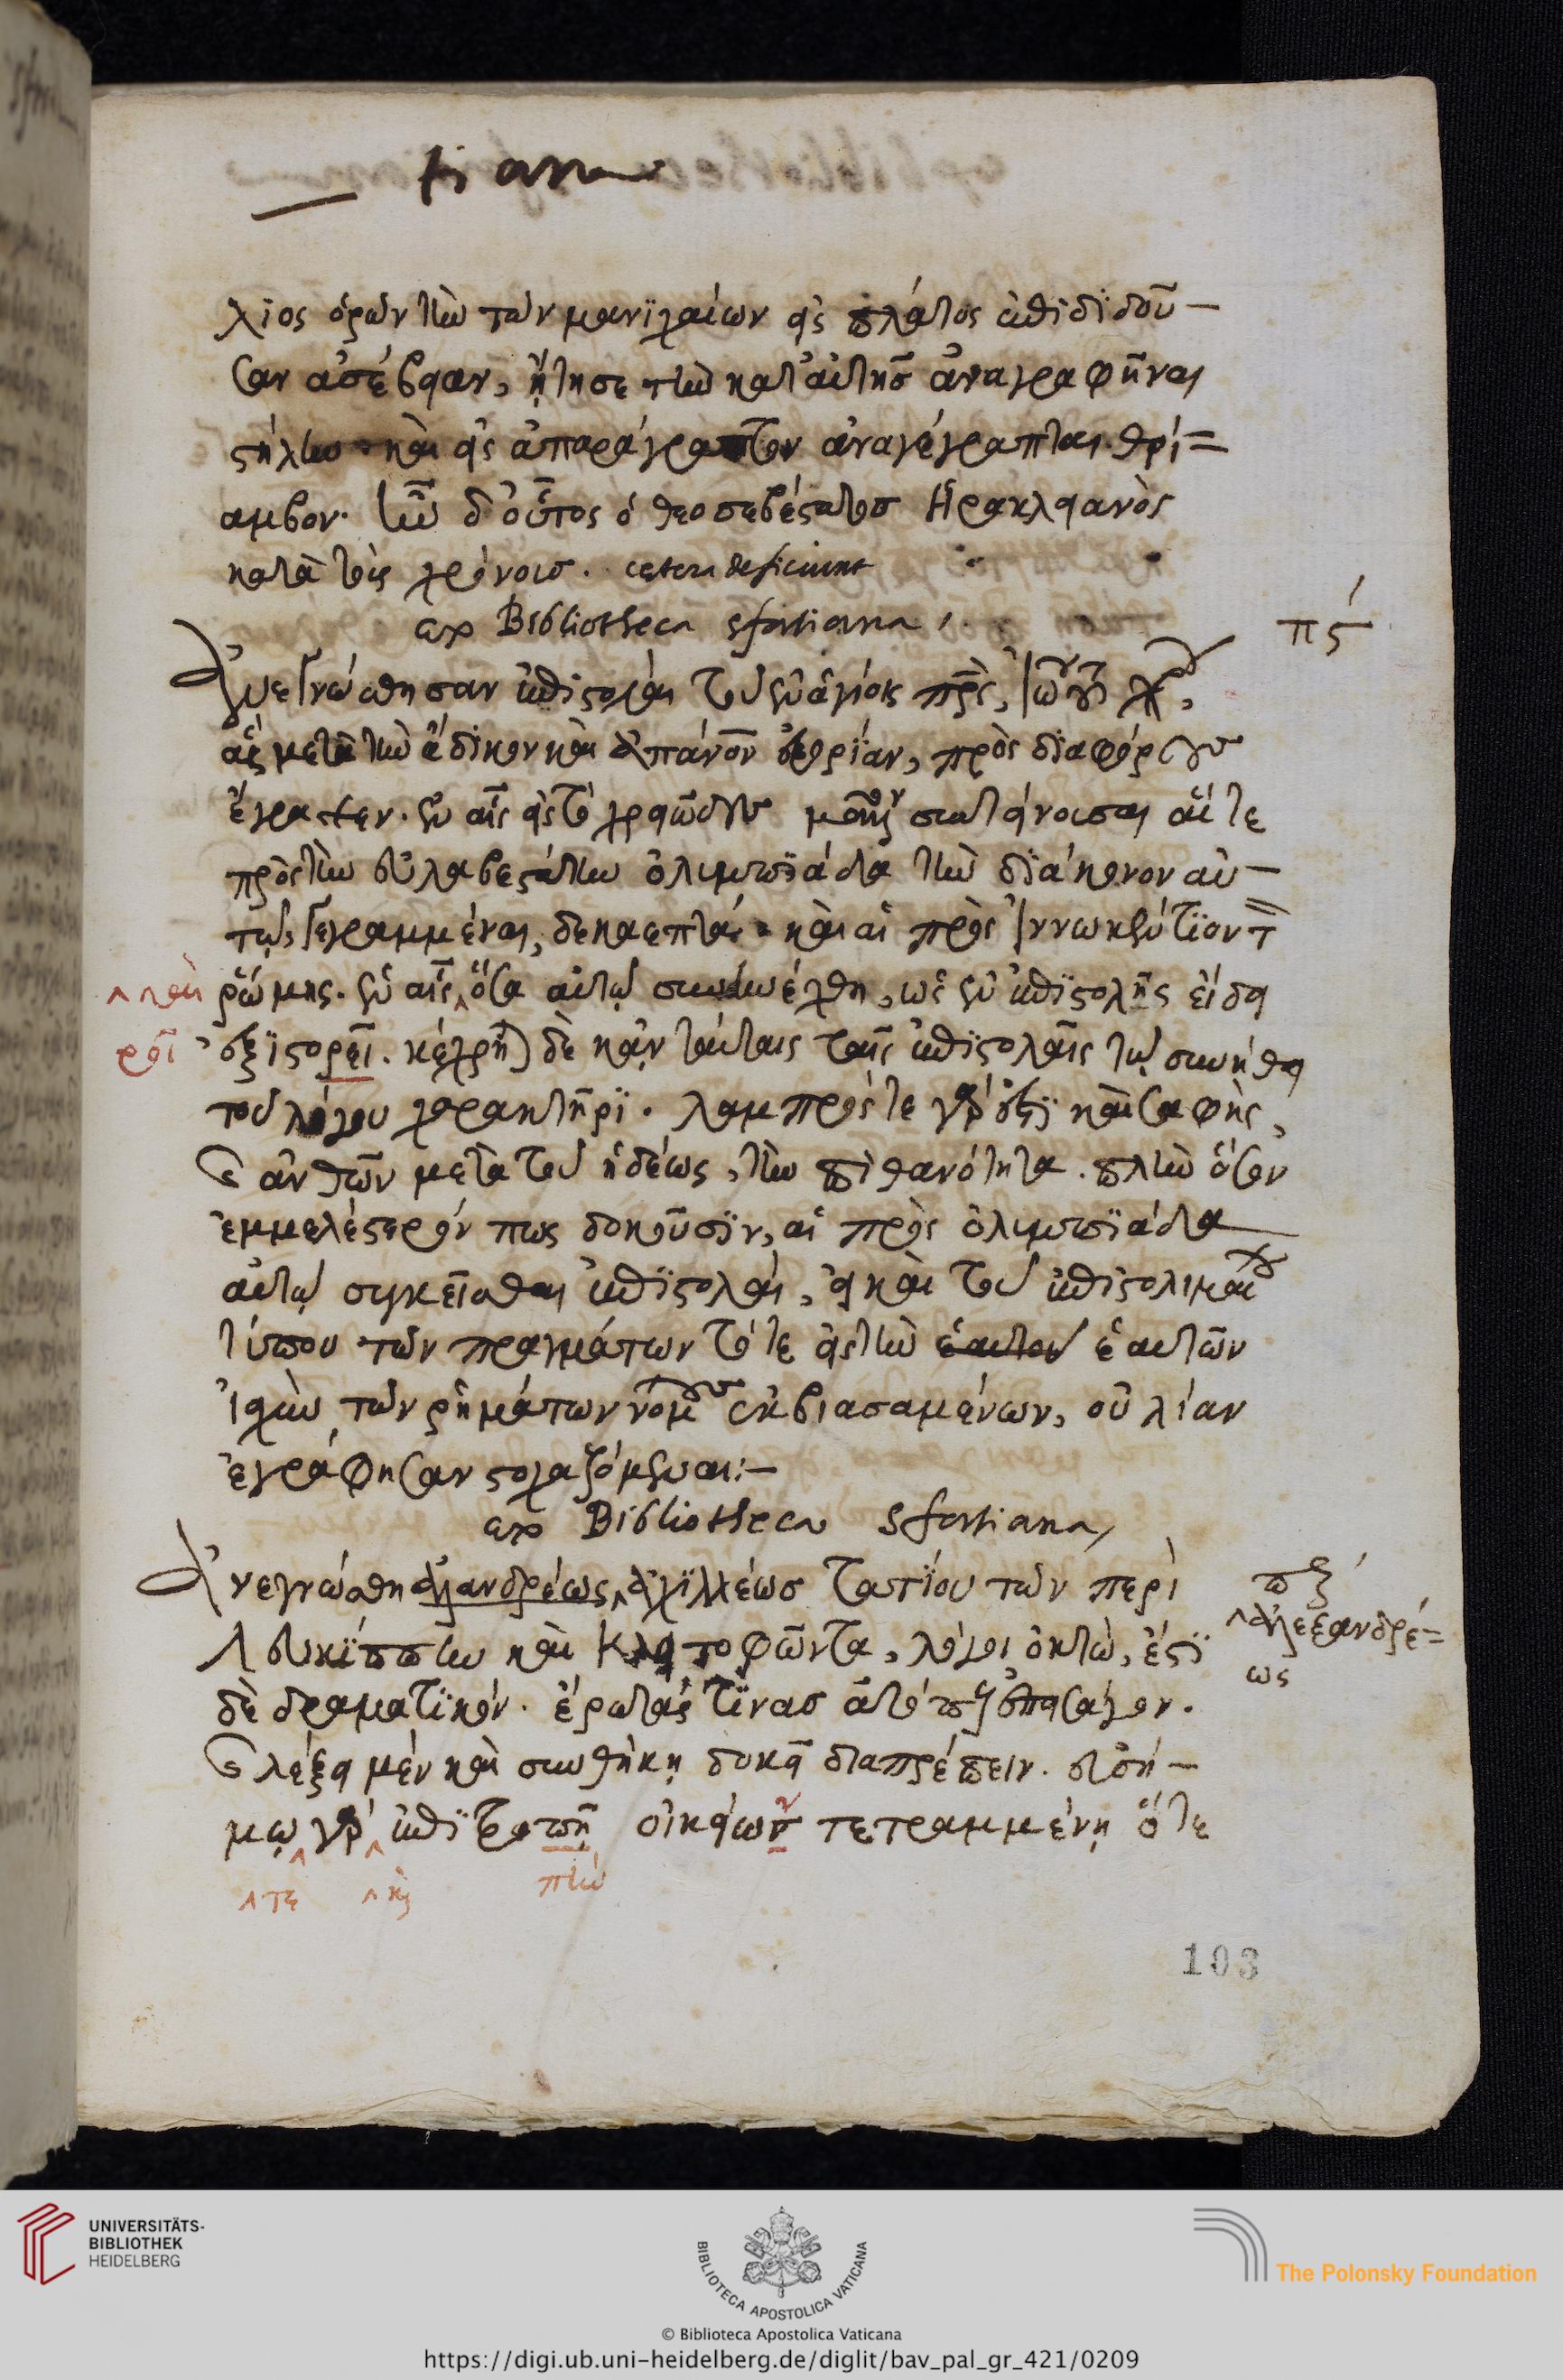 tiana
λιος ὁρῶν τὴν τῶν μανιχαίων εἰς πλάτος ἐπιδιδοῦ-
σαν ἀσέβειαν, ᾔτησε τὴν κατ' αὐτῆς ἀναγραφῆναι
στήλην καὶ εἰς ἀπαράγραπτον ἀναγέγραπται θρί=
αμβον. ἦν δ' οὗτος ὁ θεοσεβέστατος Ἡρακλειανὸς
κατὰ τοὺς χρόνους. cetera deficiunt
ex Bibliotheca sfortiana,
Ἀνεγνώσθησαν ἐπιστολαὶ τοῦ ἐν ἁγίοις πρς, Ἰωου χρ,
ἃς μετὰ τὴν ἄδικον καὶ ἀπάνον ὑπερορίαν, πρὸς διαφόρους
ἔγραψεν. ἐν αἷς εἰς τὸ χρειῶδες μᾶλλον συντείνουσαι αἵ τε
πρὸς τὴν εὐλαβεστάτην ὀλυμπιάδα τὴν διάκονον αὐ-
τῷ γεγραμμέναι, δεκαεπτά. καὶ αἱ πρὸς Ἰννωκέντιον τ
ῥώμης. ἐν αἷς ὅσα αὐτῷ συνηνέχθη, ὡς ἐν ἐπιστολῆς εἴδει
ἐξιστορεῖ. κέχρηται δὲ κἀν ταύταις ταῖς ἐπιστολαῖς τῷ συνήθει
τοῦ λόγου χαρακτῆρι. λαμπρός τε γάρ ἐστι καὶ σαφὴς,
καὶ ἀνθῶν μετὰ τοῦ ἡδέως, τὴν πιθανότητα. πλὴν ὅσον
ἐμμελέστερόν πως δοκοῦσιν, αἱ πρὸς ὀλυμπιάδα
αὐτῷ συγκεῖσθαι ἐπιστολαί, εἰ καὶ τοῦ ἐπιστολιμαίου
τύπου τῶν πραγμάτων τότε εἰς τὴν ἑαυτοῦ ἑαυτῶν
ἰσχὺν τῶν ῥημάτων νόμους ἐκβιασαμένων, οὐ λίαν
ἐγράφησαν στοχαζόμεναι:-
ex Bibliotheca Sfortiana,
Ἀνεγνώσθη ἀλεξανδρέως Ἀχιλλέως τατίου τῶν περὶ
Λευκίππην καὶ Κλειτοφῶντα, λόγοι ὀκτώ, ἔστι
δὲ δραματικόν. ἔρωτάς τινας ἀτόπους ἐπεισάγον.
λέξει μὲν καὶ συνθήκῃ δοκεῖ διαπρέπειν. εὐσή-
μῳ γάρ ἐπὶ τροπῇ οἰκείων τετραμμένῃ ὅτε
πς
πζ
ἀλεξανδρέ=
ως
καὶ
ρεῖ
τε
καὶ
πὴν
103
UNIVERSITÄTS-
BIBLIOTHEK
HEIDELBERG
BIBLIOTECA APOSTOLICA VATICANA
The Polonsky Foundation
© Biblioteca Apostolica Vaticana
https://digi.ub.uni-heidelberg.de/diglit/bav_pal_gr_421/0209